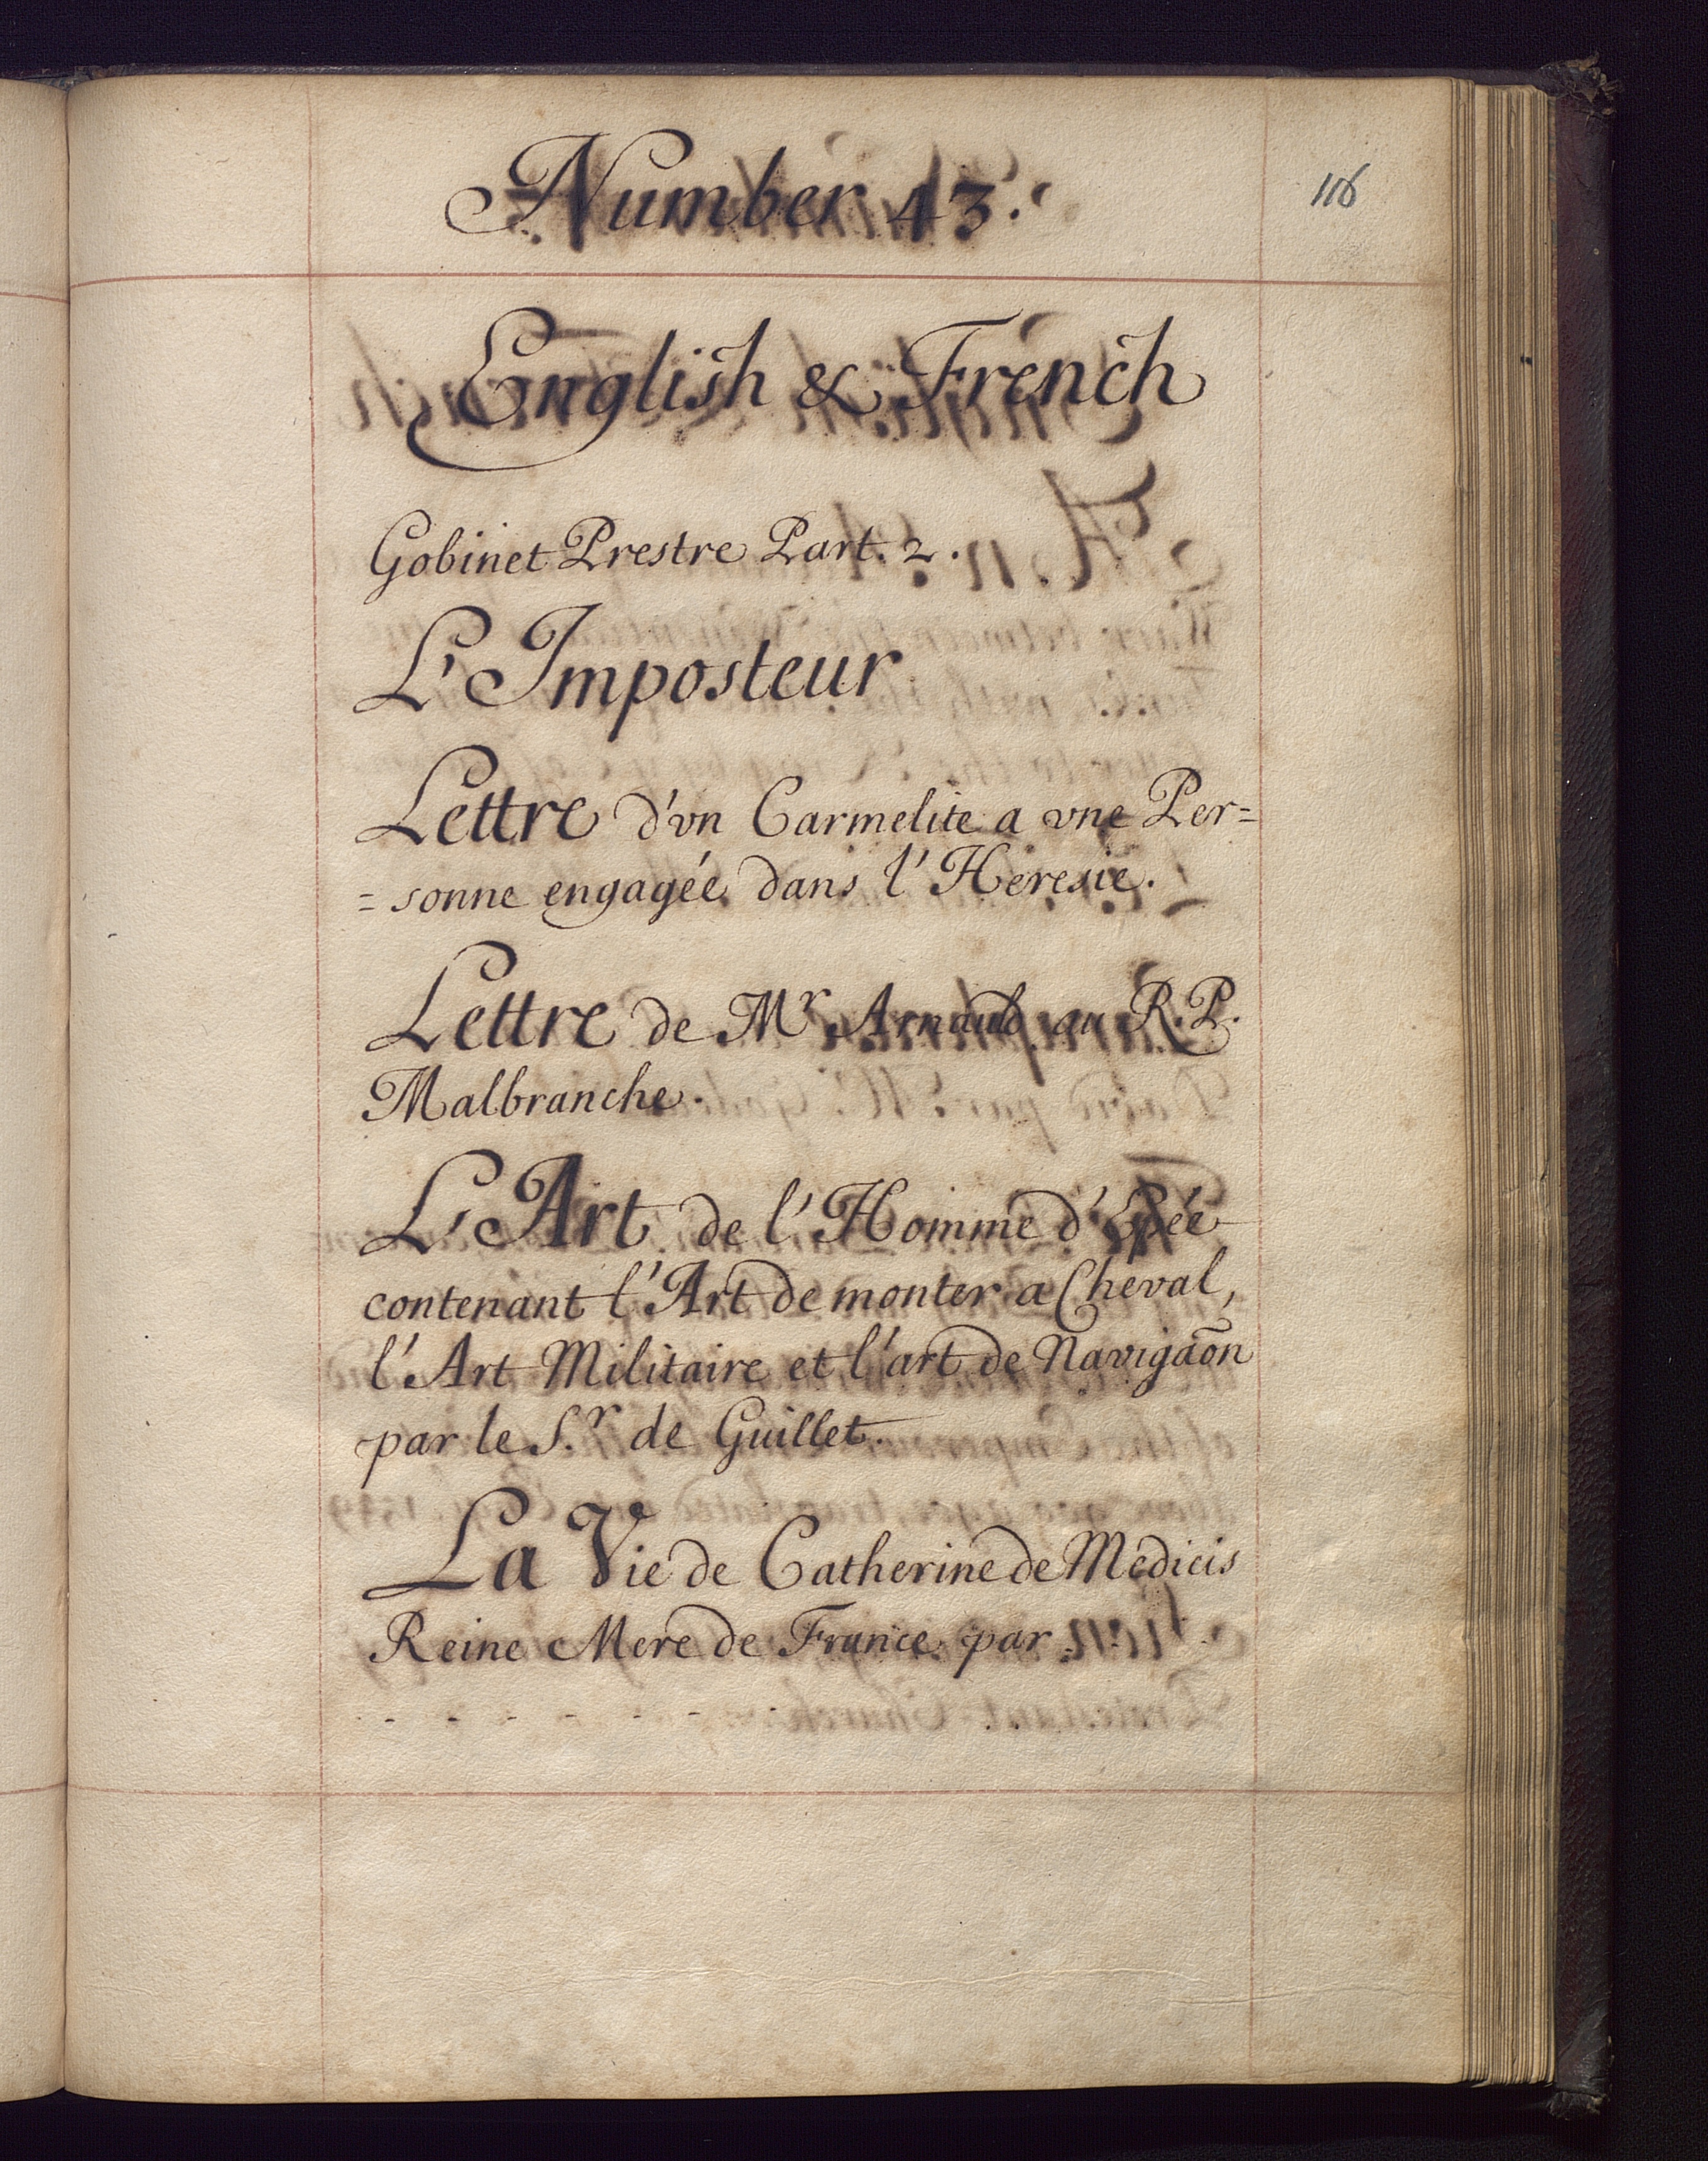 Number 43.
116
English & French
Gobinet Prestre Part. 2.
L'Imposteur
Lettre d'vn Carmelite a vne Per=
=sonne engagée dans l'Heresie.
Lettre de Mr Arnauld au R. P.
Malbranche.
L'Art de l'Homme d'Epée
contenant l'Art de monter a Cheval,
l'Art Militaire et l'art de Navigaõn
par le S.r de Guillet.
La Vie de Catherine de Medicis
Reine Mere de France par
- - - - - - - -